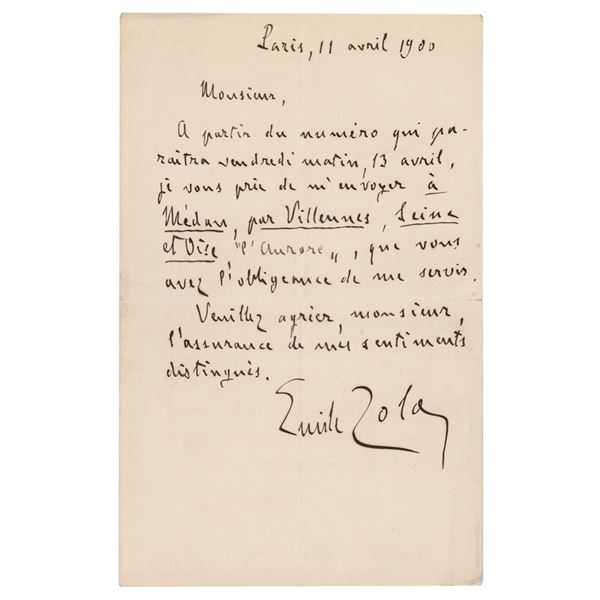 Paris, 11 avril 1900
Monsieur,
A partir du numéro qui pa-
raîtra vendredi matin, 13 avril,
je vous prie de m'envoyer à
Médan, par Villennes, Seine
et Oise "l'Aurore", que vous
avez l'obligeance de me servir.
Veuillez agréer, monsieur,
l'assurance de mes sentiments
distingués.
Emile Zola